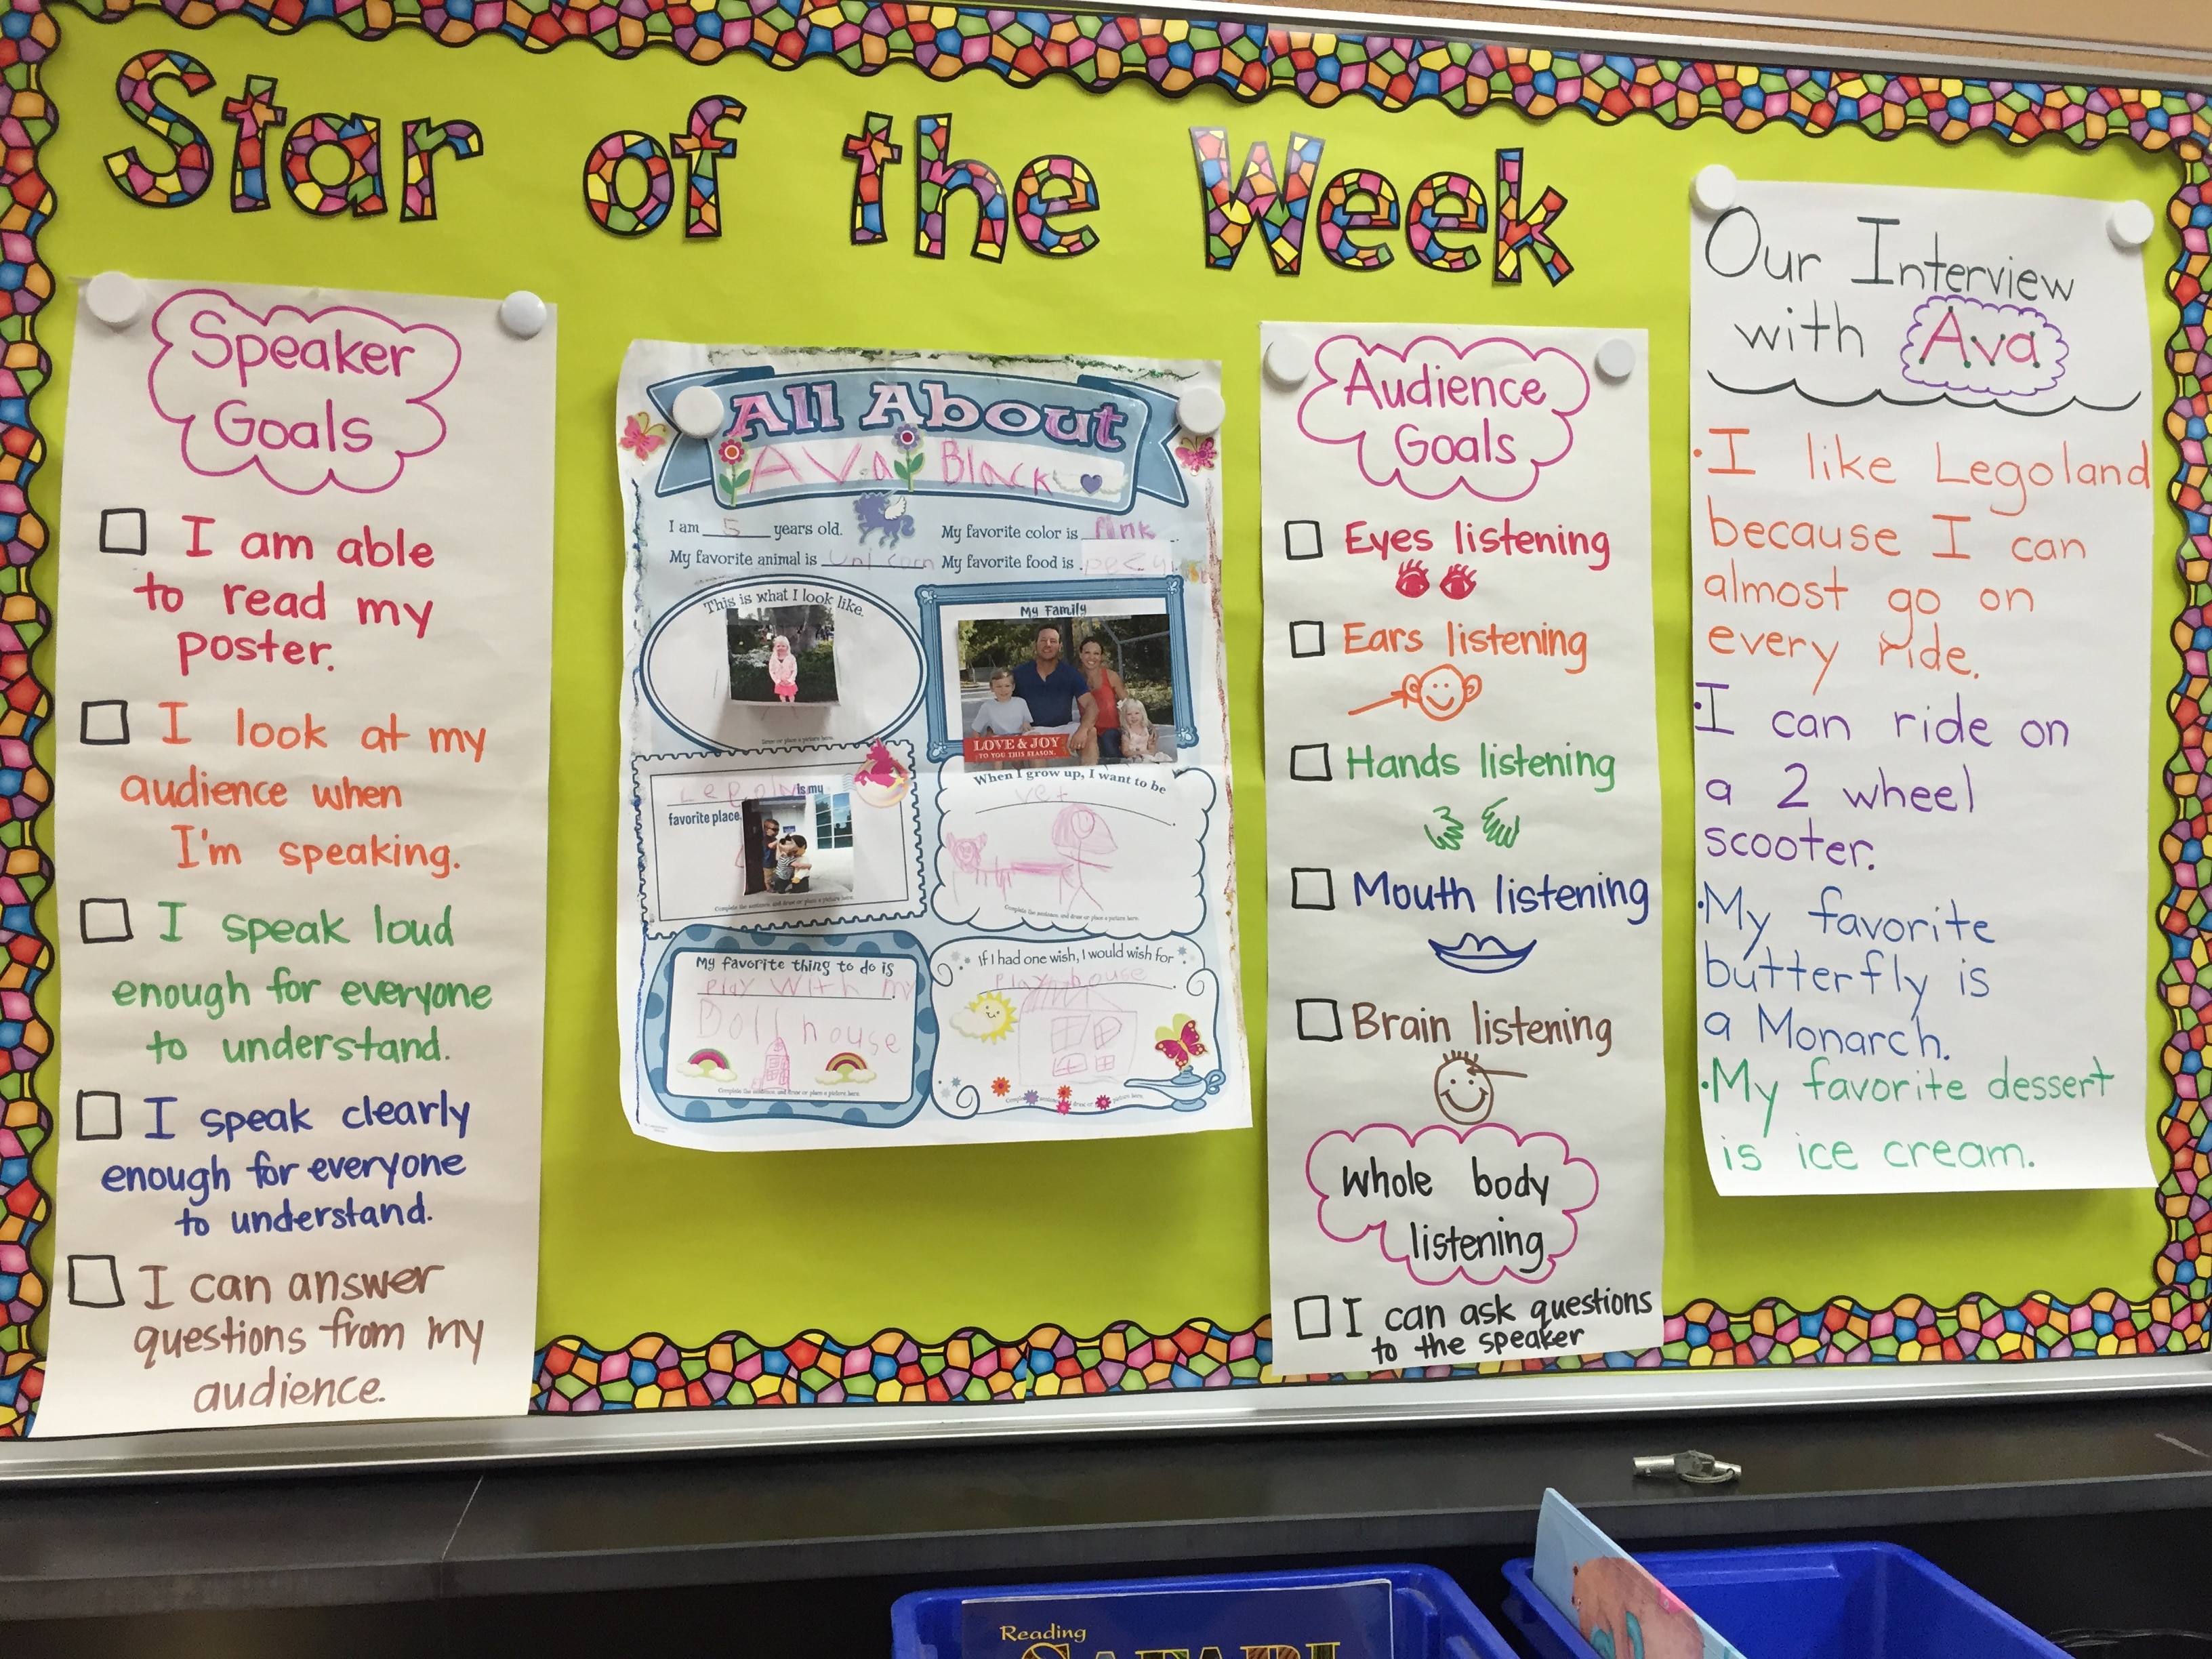 Star of the Week
Speaker
Goals
I am able
to read my
poster.
I look at my
audience when
I'm speaking.
I speak loud
enough for everyone
to understand.
I speak clearly
enough for everyone
to understand.
I can answer
questions from my
audience.
All About
AVa Black
I am 5 years old.
My favorite color is Pink
My favorite animal is unicorn
My favorite food is
This is what I look like.
Draw or place a picture here.
My Family
LOVE & JOY
TO YOU THIS SEASON.
is my
favorite place.
Complete the sentence, and draw or place a picture here.
When I grow up, I want to be
vet
Complete the sentence, and draw or place a picture here.
My favorite thing to do is
play with my
Doll house
Complete the sentence, and draw or place a picture here.
If I had one wish, I would wish for
Playhouse
Audience
Goals
Eyes listening
Ears listening
Hands listening
Mouth listening
Brain listening
whole body
listening
I can ask questions
to the speaker
Our Interview
with Ava
• I like Legoland
because I can
almost go on
every ride.
• I can ride on
a 2 wheel
scooter.
• My favorite
butterfly is
a Monarch.
• My favorite dessert
is ice cream.
Reading
SAFARI